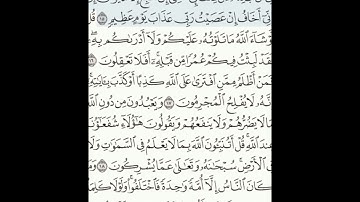 إِنِّىٓ أَخَافُ إِنْ عَصَيْتُ رَبِّى عَذَابَ يَوْمٍ عَظِيمٍ ١٥ قُل
شَآءَ ٱللَّهُ مَا تَلَوْتُهُۥ عَلَيْكُمْ وَلَآ أَدْرَىٰكُم بِهِۦ
فَقَدْ لَبِثْتُ فِيكُمْ عُمُرًا مِّن قَبْلِهِۦٓ أَفَلَا تَعْقِلُونَ ١٦
فَمَنْ أَظْلَمُ مِمَّنِ ٱفْتَرَىٰ عَلَى ٱللَّهِ كَذِبًا أَوْ كَذَّبَ بِـَٔايَٰتِهِۦٓ
إِنَّهُۥ لَا يُفْلِحُ ٱلْمُجْرِمُونَ ١٧ وَيَعْبُدُونَ مِن دُونِ ٱللَّهِ
مَا لَا يَضُرُّهُمْ وَلَا يَنفَعُهُمْ وَيَقُولُونَ هَٰٓؤُلَآءِ شُفَعَٰٓؤُنَا
عِندَ ٱللَّهِ قُلْ أَتُنَبِّـُٔونَ ٱللَّهَ بِمَا لَا يَعْلَمُ فِى ٱلسَّمَٰوَٰتِ وَلَا
فِى ٱلْأَرْضِ سُبْحَٰنَهُۥ وَتَعَٰلَىٰ عَمَّا يُشْرِكُونَ ١٨
كَانَ ٱلنَّاسُ إِلَّآ أُمَّةً وَٰحِدَةً فَٱخْتَلَفُوا۟ وَلَوْلَا كَلِمَةٌ